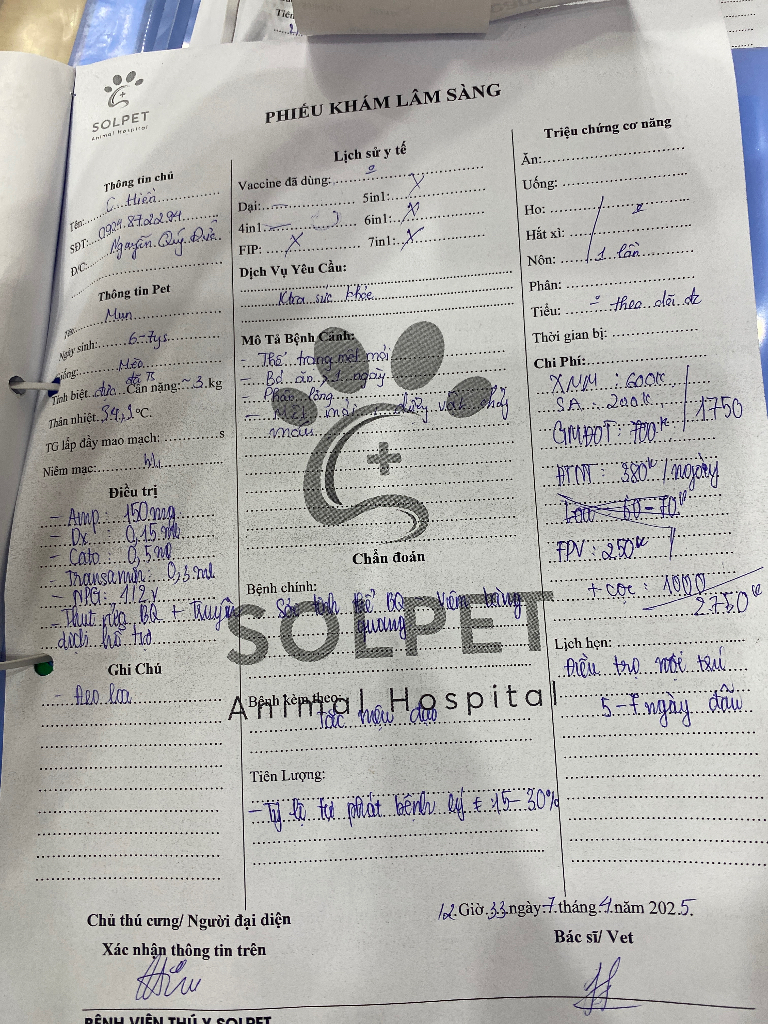 SOLPET
Animal Hospital
PHIẾU KHÁM LÂM SÀNG
Thông tin chủ
Tên: C. Hiền
SĐT:
Đ/C: Nguyễn Quý Đức
Thông tin Pet
Tên: Mun
Ngày sinh: 6-7ys
Giống: Mèo
Tính biệt: đực đã TS Cân nặng: ~3 kg
Thân nhiệt: 34,1°C.
TG lấp đầy mao mạch: s
Niêm mạc:
Điều trị
- Amp: 150mg
- Dx: 0,15ml
- Cato: 0,5ml
- Transamin: 0,3ml
- NPG: 1/2v
- Thụt rửa BQ + truyền
dịch hỗ trợ
Ghi Chú
- Đeo loa
Lịch sử y tế
Vaccine đã dùng:
Dại: 5in1: X
4in1: 6in1: X
FIP: X 7in1: X
Dịch Vụ Yêu Cầu:
Khám sức khỏe
Mô Tả Bệnh Cảnh:
- Thể trạng mệt mỏi
- Bỏ ăn > 1 ngày
-
- vẫn chảy
máu
Chẩn đoán
Bệnh chính:
BQ Viêm bàng
quang
SOLPET
Animal Hospital
Bệnh kèm theo:
Tắc niệu đạo
Tiên Lượng:
- Tỷ lệ tự phát bệnh lý ± 15-30%
Triệu chứng cơ năng
Ăn:
Uống:
Ho:
Hắt xì:
Nôn: 1 lần
Phân:
Tiểu: theo dõi
Thời gian bị:
Chi Phí:
XNM: 600k
SA: 200k
700k
1750
ĐTNT: 380k/ngày
Loa 60-70k
FPV: 250k
+ cọc: 1000
2750k
Lịch hẹn:
Điều trị nội trú
5-7 ngày đầu
12 Giờ 33 ngày 7 tháng 4 năm 2025.
Chủ thú cưng/ Người đại diện
Xác nhận thông tin trên
Bác sĩ/ Vet
BỆNH VIỆN THÚ Y SOLPET